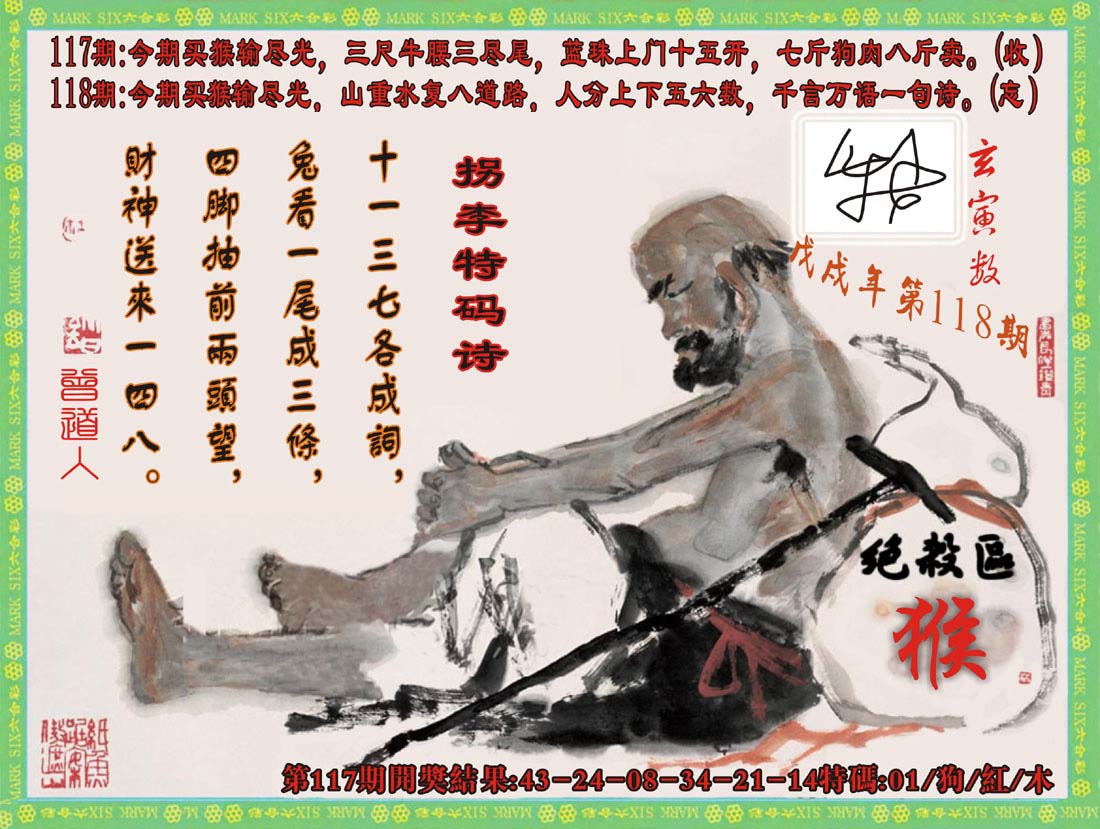 MARK SIX六合彩 MARK SIX六合彩 MARK SIX六合彩 MARK SIX六合彩 MARK SIX六合彩 MARK SIX六合彩
117期:今期买猴输尽光，三尺牛腰三尽尾，蓝珠上门十五开，七斤狗肉八斤卖。(收)
118期:今期买猴输尽光，山重水复八道路，人分上下五六数，千言万语一句诗。(忘)
玄寅数
戊戌年第118期
拐李特码诗
十一三七各成詞，
兔看一尾成三條，
四脚抽前兩頭望，
財神送來一四八。
曾道人
绝殺區
猴
第117期開獎結果:43-24-08-34-21-14特碼:01/狗/紅/木